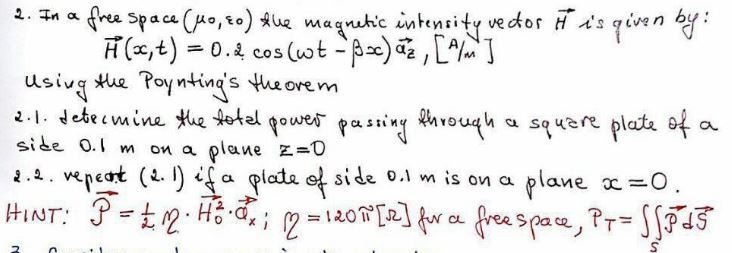 2. In a free space (μ0, ε0) the magnetic intensity vector H⃗ is given by:
H⃗(x,t) = 0.2 cos(ωt − βx) a⃗z, [A/m]
Using the Poynting's theorem
2.1. determine the total power passing through a square plate of a
side 0.1 m on a plane z=0
2.2. repeat (2.1) if a plate of side 0.1 m is on a plane x=0.
HINT: P⃗ = ½ η · H⃗₀² · a⃗x; η = 120π [Ω] for a free space, PT = ∬S P⃗ dS⃗